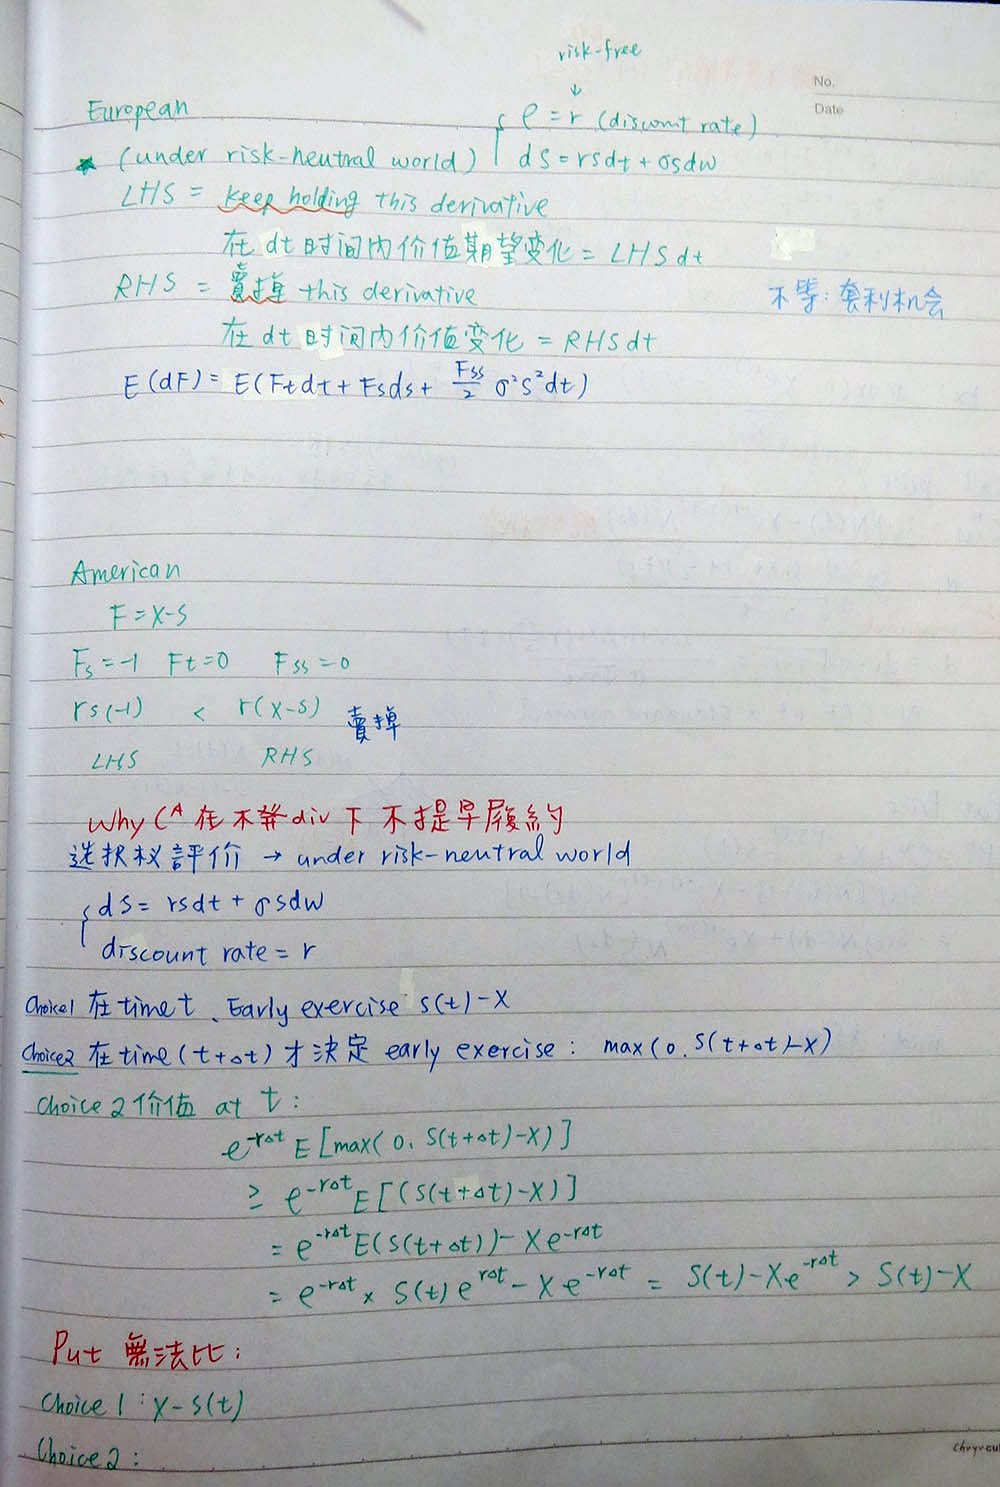 risk-free
↓
No.
Date
European
ρ = r (discount rate)
* (under risk-neutral world) dS = rsdt + σsdw
LHS = keep holding this derivative
在 dt 时间内价值期望变化 = LHS dt
RHS = 賣掉 this derivative
不等: 套利机会
在 dt 时间内价值变化 = RHS dt
E(dF) = E(Ftdt + Fsds + Fss/2 σ²S²dt)
American
F = X-S
Fs = -1 Ft = 0 Fss = 0
rs(-1) < r(X-S) 賣掉
LHS RHS
Why Cᴬ 在不發div下不提早履約
选択权評价 → under risk-neutral world
dS = rsdt + σsdw
discount rate = r
choice1 在 time t、Early exercise S(t)-X
choice2 在 time (t+Δt) 才決定 early exercise: max(0, S(t+Δt)-X)
choice 2 价值 at t:
e^-rΔt E[max(0, S(t+Δt)-X)]
≥ e^-rΔt E[(S(t+Δt)-X)]
= e^-rΔt E(S(t+Δt)) - Xe^-rΔt
= e^-rΔt × S(t)e^rΔt - Xe^-rΔt = S(t)-Xe^-rΔt > S(t)-X
Put 無法比:
choice 1: X-S(t)
choice 2: